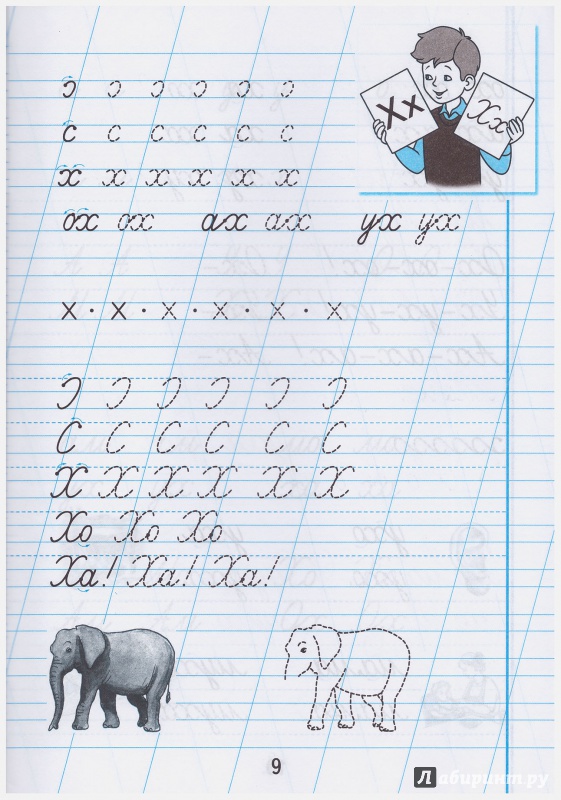 Хх Хх
ɔ ɔ ɔ ɔ ɔ ɔ
с с с с с с
х х х х х х
ох ох ах ах ух ух
х · х · х · х · х · х
Ɔ Ɔ Ɔ Ɔ Ɔ Ɔ
С С С С С С
Х Х Х Х Х Х
Хо Хо Хо
Ха! Ха! Ха!
9
Лабиринт.ру